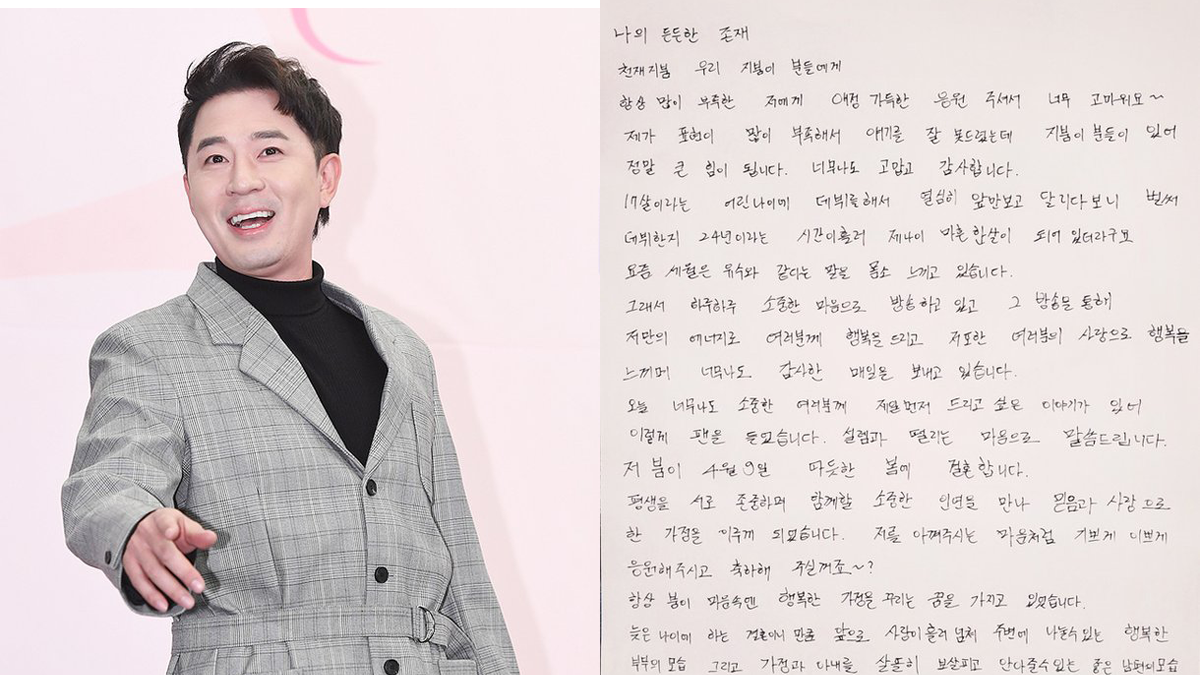 나의 든든한 존재
천재지붐 우리 지붐이 분들에게
항상 많이 부족한 저에게 애정 가득한 응원 주셔서 너무 고마워요~
제가 표현이 많이 부족해서 얘기를 잘 못드렸는데 지붐이 분들이 있어
정말 큰 힘이 됩니다. 너무나도 고맙고 감사합니다.
17살이라는 어린나이에 데뷔를해서 열심히 앞만보고 달리다보니 벌써
데뷔한지 24년이라는 시간이흘러 제나이 마흔한살이 되어 있더라구요
요즘 세월은 유수와 같다는 말을 몸소 느끼고 있습니다.
그래서 하루하루 소중한 마음으로 방송하고 있고 그 방송을 통해
저만의 에너지로 여러분께 행복을 드리고 저또한 여러분의 사랑으로 행복을
느끼며 너무나도 감사한 매일을 보내고 있습니다.
오늘 너무나도 소중한 여러분께 제일먼저 드리고 싶은 이야기가 있어
이렇게 펜을 들었습니다. 설렘과 떨리는 마음으로 말씀드립니다.
저 붐이 4월 9일 따듯한 봄에 결혼합니다.
평생을 서로 존중하며 함께할 소중한 인연을 만나 믿음과 사랑으로
한 가정을 이루게 되었습니다. 저를 아껴주시는 마음처럼 기쁘게 이쁘게
응원해주시고 축하해 주실꺼죠~?
항상 붐이 마음속엔 행복한 가정을 꾸리는 꿈을 가지고 있었습니다.
늦은 나이에 하는 결혼이니 만큼 앞으로 사랑이 흘러 넘쳐 주변에 나눌수있는 행복한
부부의 모습 그리고 가정과 아내를 살뜰히 보살피고 안아줄수있는 좋은 남편의모습